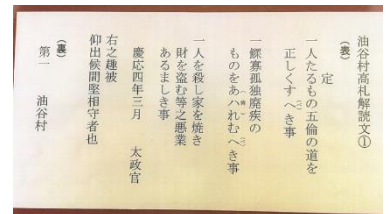 油谷村高札解読文①
（表）
定
一人たるもの五倫の道を
正しくすへき事
一鰥寡孤独廃疾の
ものをあハれむへき事
一人を殺し家を焼き
財を盗む等之悪業
あるましき事
慶応四年三月　太政官
右之趣被
仰出候間堅相守者也
（裏）
第一　油谷村